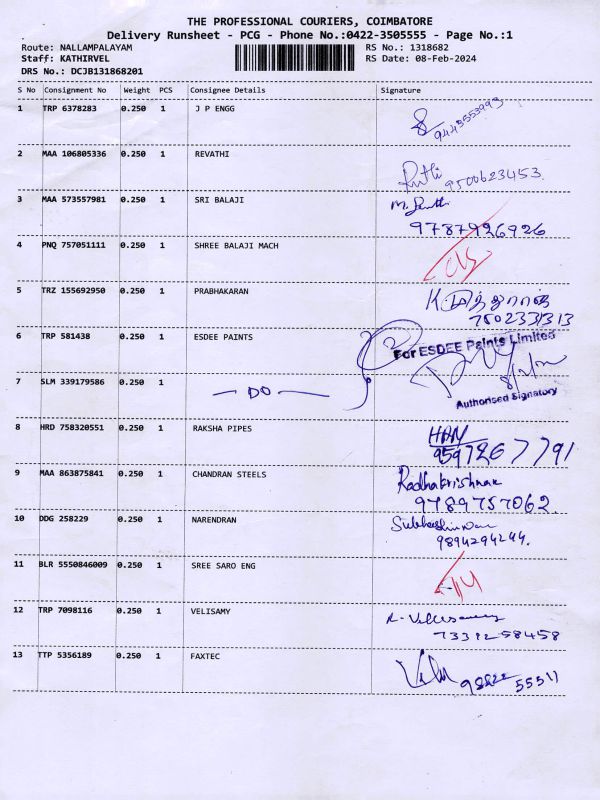 THE PROFESSIONAL COURIERS, COIMBATORE
Delivery Runsheet - PCG - Phone No.:0422-3505555 - Page No.:1
Route: NALLAMPALAYAM RS No.: 1318682
Staff: KATHIRVEL RS Date: 08-Feb-2024
DRS No.: DCJB131868201
S No Consignment No Weight PCS Consignee Details Signature
1 TRP 6378283 0.250 1 J P ENGG 9443553993
2 MAA 106805336 0.250 1 REVATHI 9500623453
3 MAA 573557981 0.250 1 SRI BALAJI 9787926926
4 PNQ 757051111 0.250 1 SHREE BALAJI MACH
5 TRZ 155692950 0.250 1 PRABHAKARAN
6 TRP 581438 0.250 1 ESDEE PAINTS For ESDEE Paints Limited
7 SLM 339179586 0.250 1 — DO — Authorised Signatory
8 HRD 758320551 0.250 1 RAKSHA PIPES 9597267791
9 MAA 863875841 0.250 1 CHANDRAN STEELS Radhakrishnan
9789757062
10 DDG 258229 0.250 1 NARENDRAN
9894294244
11 BLR 5550846009 0.250 1 SREE SARO ENG
12 TRP 7098116 0.250 1 VELISAMY
7339258458
13 TTP 5356189 0.250 1 FAXTEC